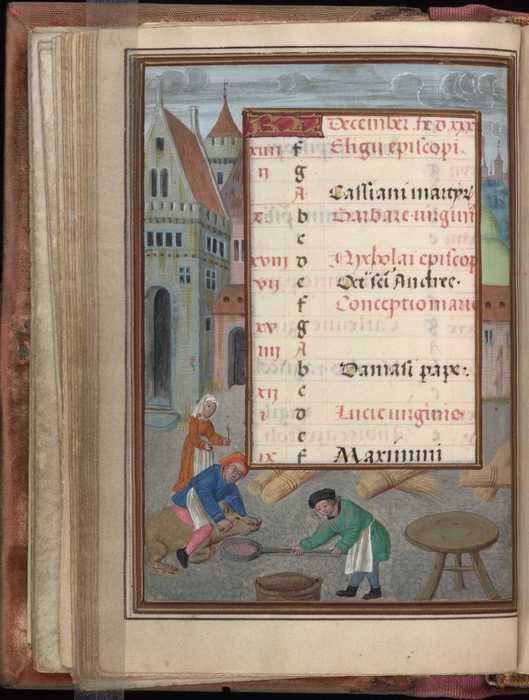 December ht d xxx
xiii f Eligii episcopi.
ii g
A Cassiani martyr
x b Barbare virginis
c
xviii d Nycholai episcop
vii e Oct' sci Andree.
f Conceptio marie
xv g
iiii A
b Damasi pape.
xii c
i d Lucie virginis
e
ix f Maximini